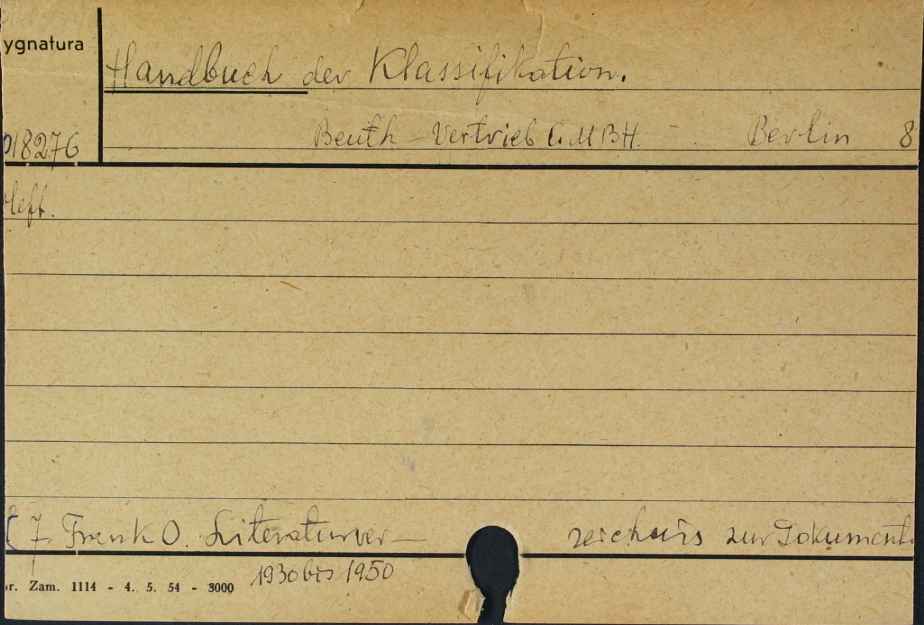 ygnatura
Handbuch der Klassifikation.
18276 Beuth - Vertrieb G.M.B.H. Berlin 8
Heft.
7 Frank O. Literaturver- zeichnis zur Dokument.
1930 bis 1950
r. Zam. 1114 - 4. 5. 54 - 3000